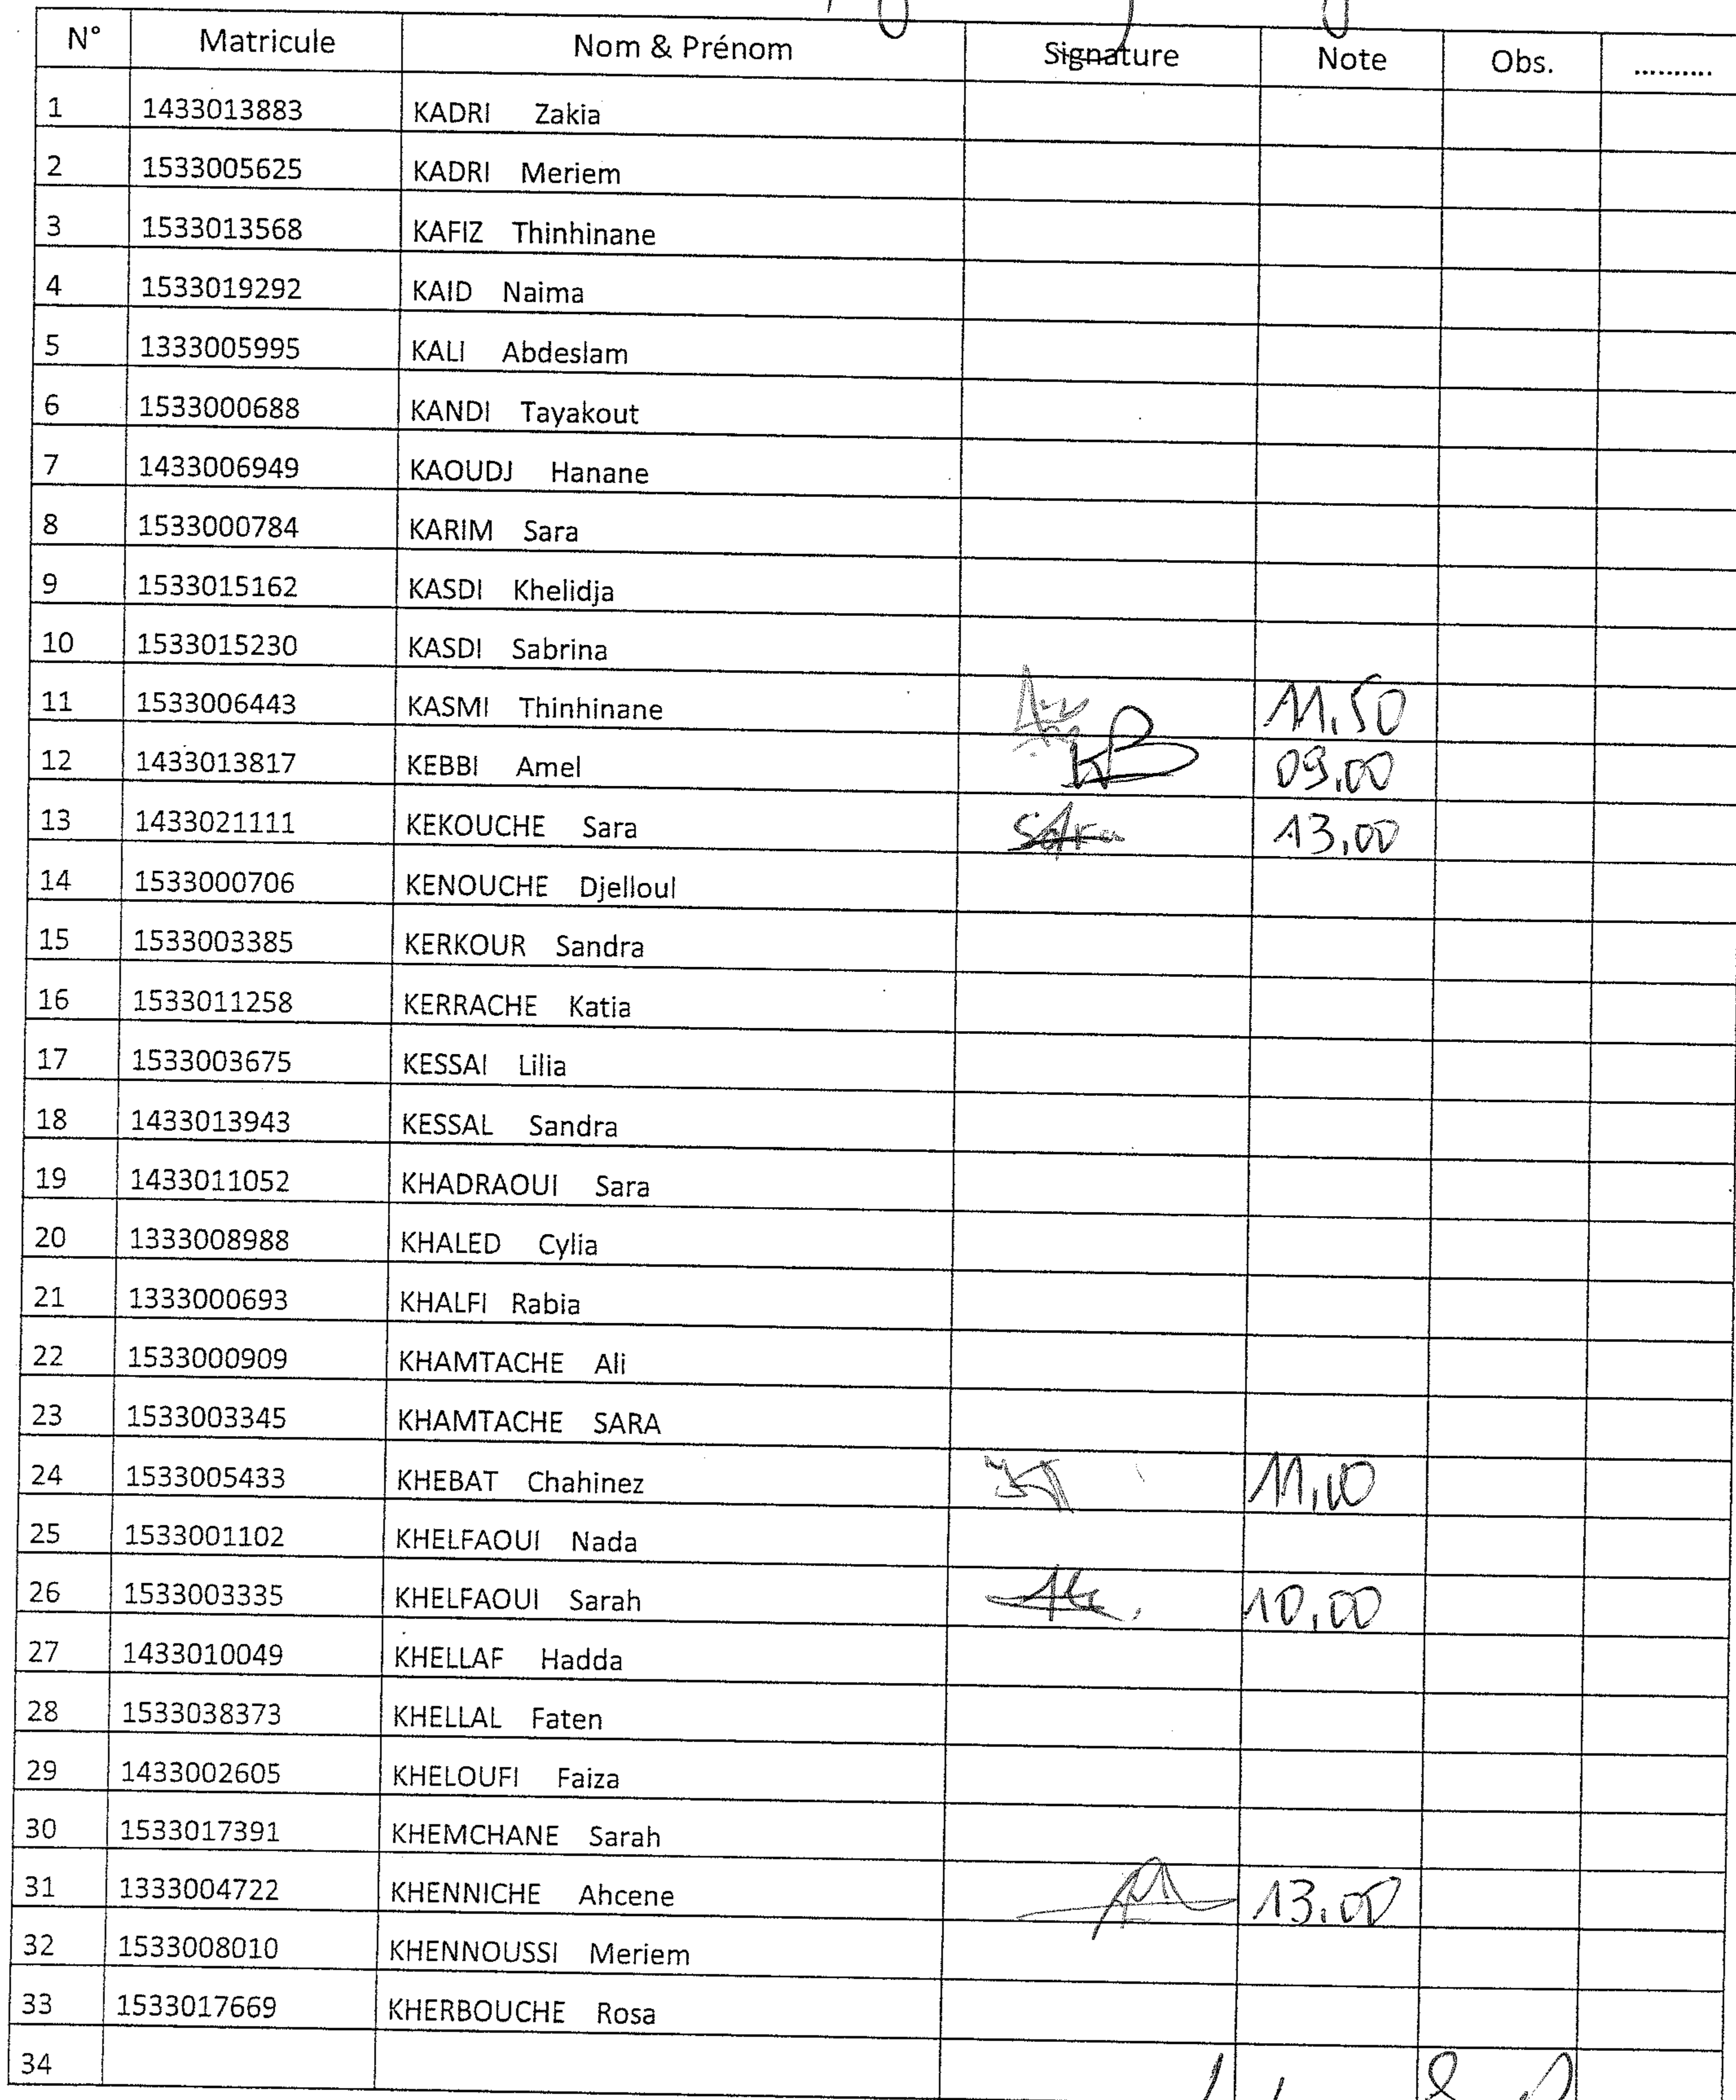 N° Matricule Nom & Prénom Signature Note Obs. ..........
1 1433013883 KADRI Zakia
2 1533005625 KADRI Meriem
3 1533013568 KAFIZ Thinhinane
4 1533019292 KAID Naima
5 1333005995 KALI Abdeslam
6 1533000688 KANDI Tayakout
7 1433006949 KAOUDJ Hanane
8 1533000784 KARIM Sara
9 1533015162 KASDI Khelidja
10 1533015230 KASDI Sabrina
11 1533006443 KASMI Thinhinane 11,50
12 1433013817 KEBBI Amel 09,00
13 1433021111 KEKOUCHE Sara 13,00
14 1533000706 KENOUCHE Djelloul
15 1533003385 KERKOUR Sandra
16 1533011258 KERRACHE Katia
17 1533003675 KESSAI Lilia
18 1433013943 KESSAL Sandra
19 1433011052 KHADRAOUI Sara
20 1333008988 KHALED Cylia
21 1333000693 KHALFI Rabia
22 1533000909 KHAMTACHE Ali
23 1533003345 KHAMTACHE SARA
24 1533005433 KHEBAT Chahinez
25 1533001102 KHELFAOUI Nada
26 1533003335 KHELFAOUI Sarah 10,00
27 1433010049 KHELLAF Hadda
28 1533038373 KHELLAL Faten
29 1433002605 KHELOUFI Faiza
30 1533017391 KHEMCHANE Sarah
31 1333004722 KHENNICHE Ahcene 13,00
32 1533008010 KHENNOUSSI Meriem
33 1533017669 KHERBOUCHE Rosa
34